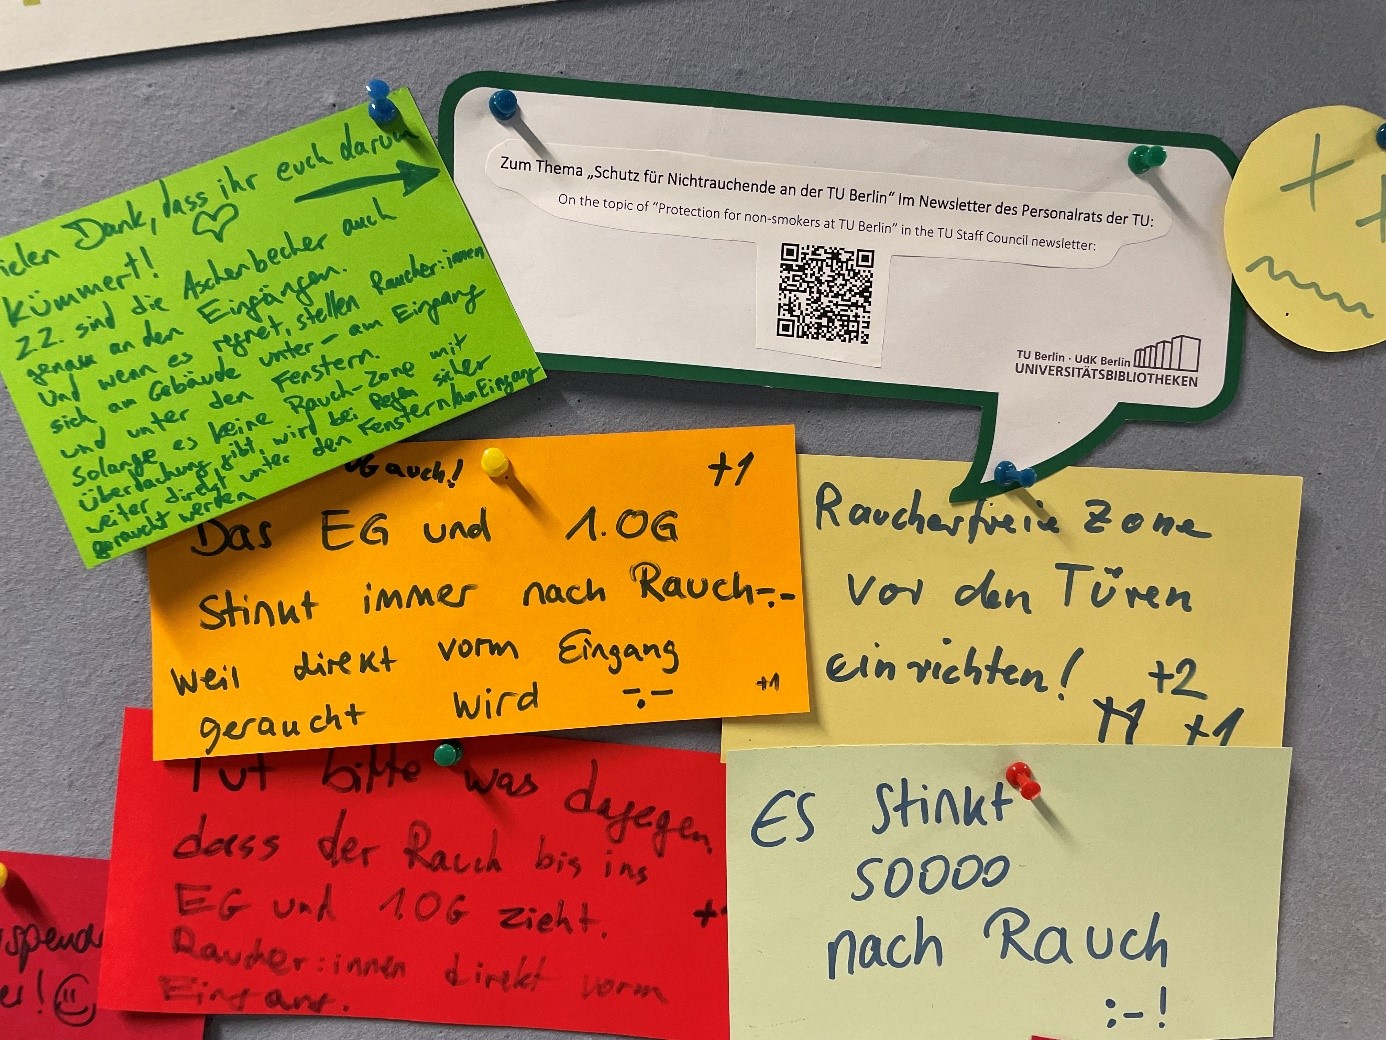 ielen Dank, dass ihr euch darum
kümmert!
ZZ. sind die Aschenbecher auch
genau an den Eingängen.
Und wenn es regnet, stellen Raucher:innen
sich am Gebäude unter - am Eingang
und unter den Fenstern.
Solange es keine Rauch-Zone mit
Überdachung gibt, wird bei Regen sicher
weiter direkt unter den Fenstern/am Eingang
geraucht werden
Zum Thema „Schutz für Nichtrauchende an der TU Berlin“ Im Newsletter des Personalrats der TU:
On the topic of “Protection for non-smokers at TU Berlin” in the TU Staff Council newsletter:
TU Berlin · UdK Berlin
UNIVERSITÄTSBIBLIOTHEKEN
auch!
+1
Das EG und 1.OG
stinkt immer nach Rauch -.-
weil direkt vorm Eingang
geraucht wird -.-
+1
Raucherfreie Zone
vor den Türen
einrichten!
+2
+1 +1
Tut bitte was dagegen,
dass der Rauch bis ins
EG und 1.OG zieht.
Raucher:innen direkt vorm
Eingang.
ES stinkt
soooo
nach Rauch
:-!